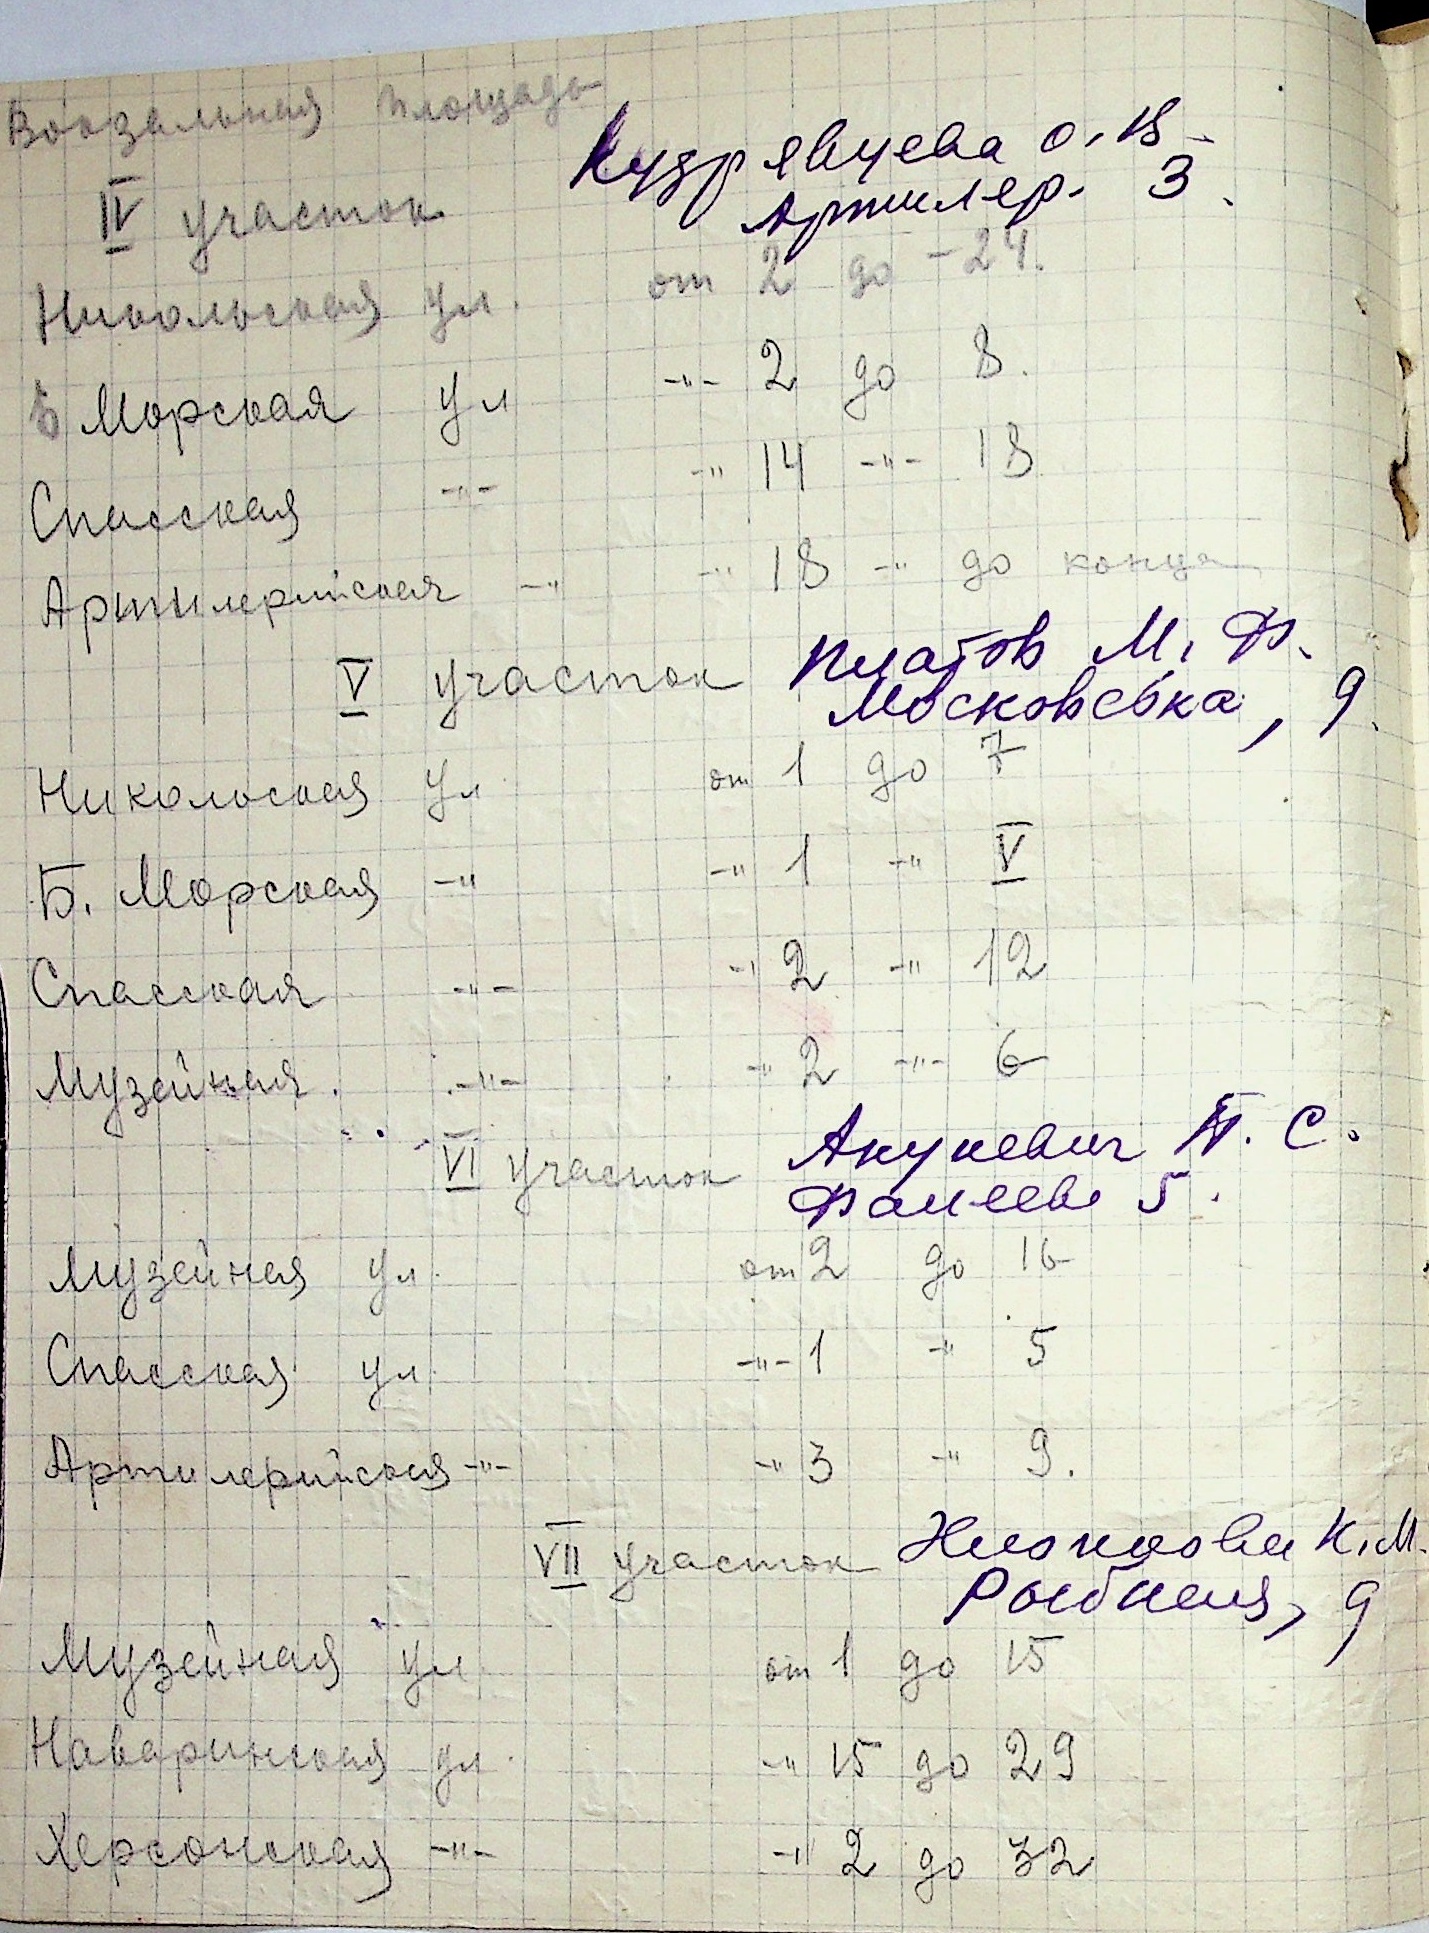 Вокзальная площадь
Кудрявцева О. В.
IV участок Артилер. 3.
Никольская ул. от 2 до - 24.
Б Морская ул -"- 2 до 8.
Спасская -"- -" 14 -"- 18
Артилерийская -" -" 18 -" до конца
V участок Платов М. Ф.
Московська, 9.
Никольская ул. от 1 до 7
Б. Морская -" -" 1 -" V
Спасская -"- -" 2 -" 12
Музейная. -"- -" 2 -"- 6
VI участок П. С.
5.
Музейная ул. от 2 до 16
Спасская ул. -"- 1 -" 5
Артилерийская -"- -" 3 -" 9.
VII участок К. М.
Рыбная, 9
Музейная ул. от 1 до 15
Наваринская ул. -" 15 до 29
Херсонская -"- -" 2 до 32